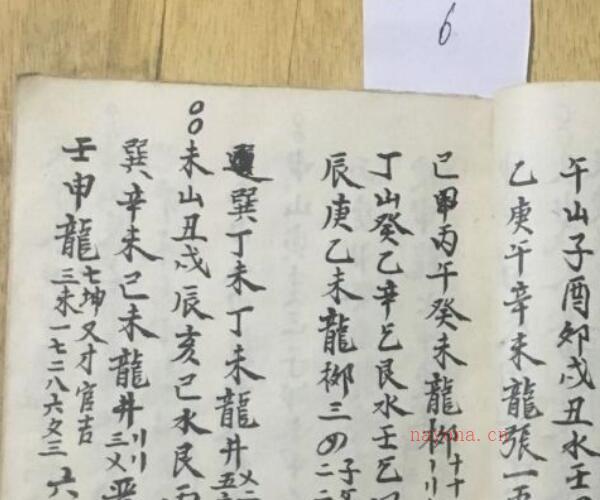 6
午山子酉卯戌丑水壬
乙庚午辛未龍張一
己甲丙午癸未龍柳
丁山癸乙辛乞艮水壬乞
辰庚乙未龍柳三
巽丁未丁未龍井
未山丑戌辰亥己水艮
巽辛未己未龍井三
壬申龍七坤又才官吉
三未一七二八六文三
nayona.cn